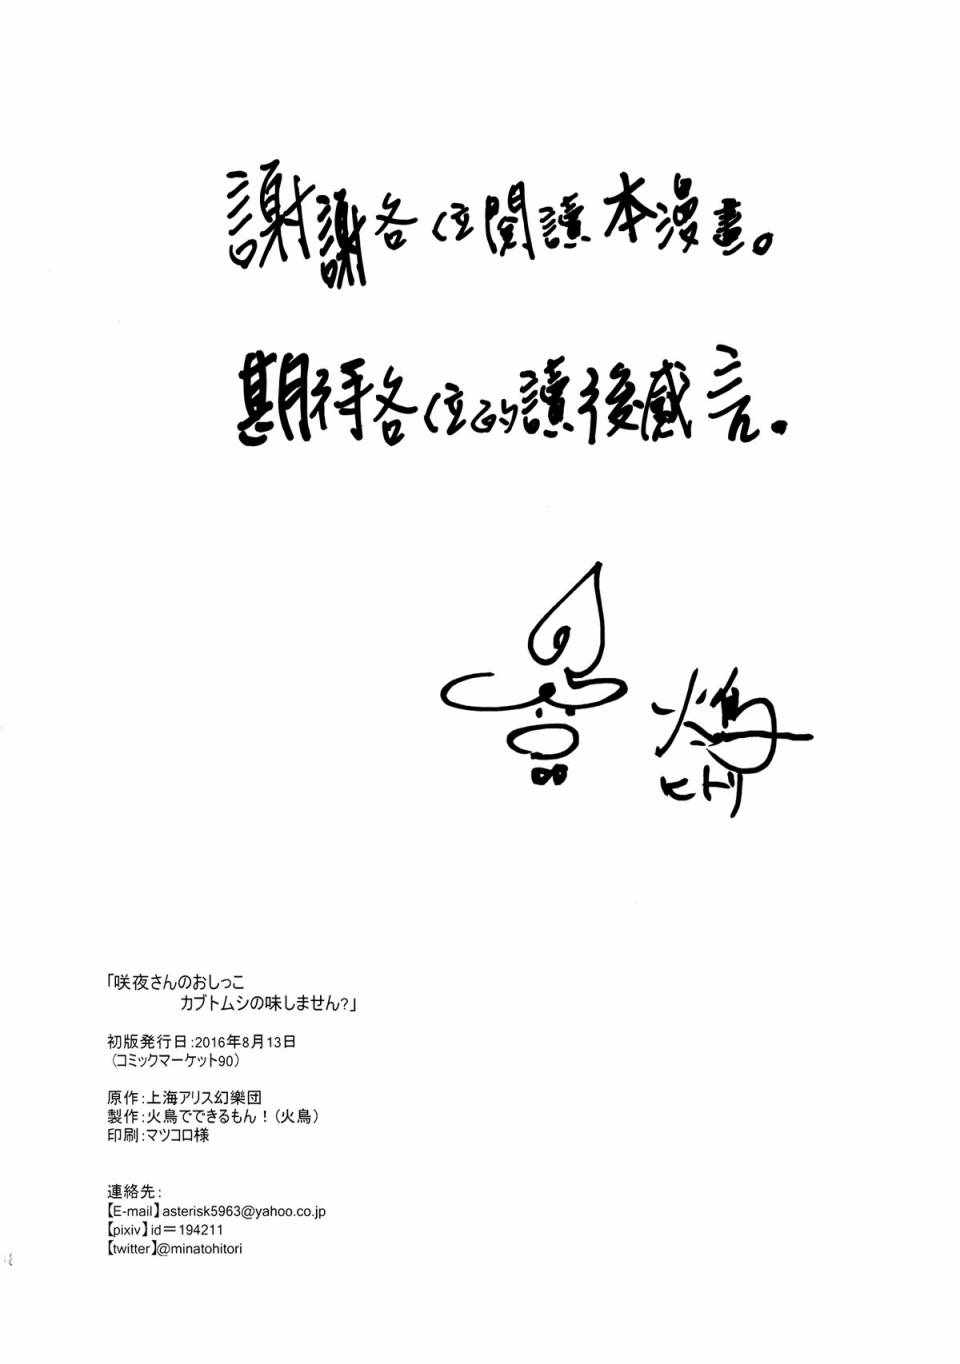 謝謝各位閱讀本漫畫。
期待各位的讀後感言。
火鳥
ヒトリ
「咲夜さんのおしっこ
カブトムシの味しません?」
初版発行日:2016年8月13日
（コミックマーケット90）
原作:上海アリス幻樂団
製作:火鳥でできるもん！(火鳥)
印刷:マツコロ様
連絡先:
【E-mail】asterisk5963@yahoo.co.jp
【pixiv】id＝194211
【twitter】@minatohitori